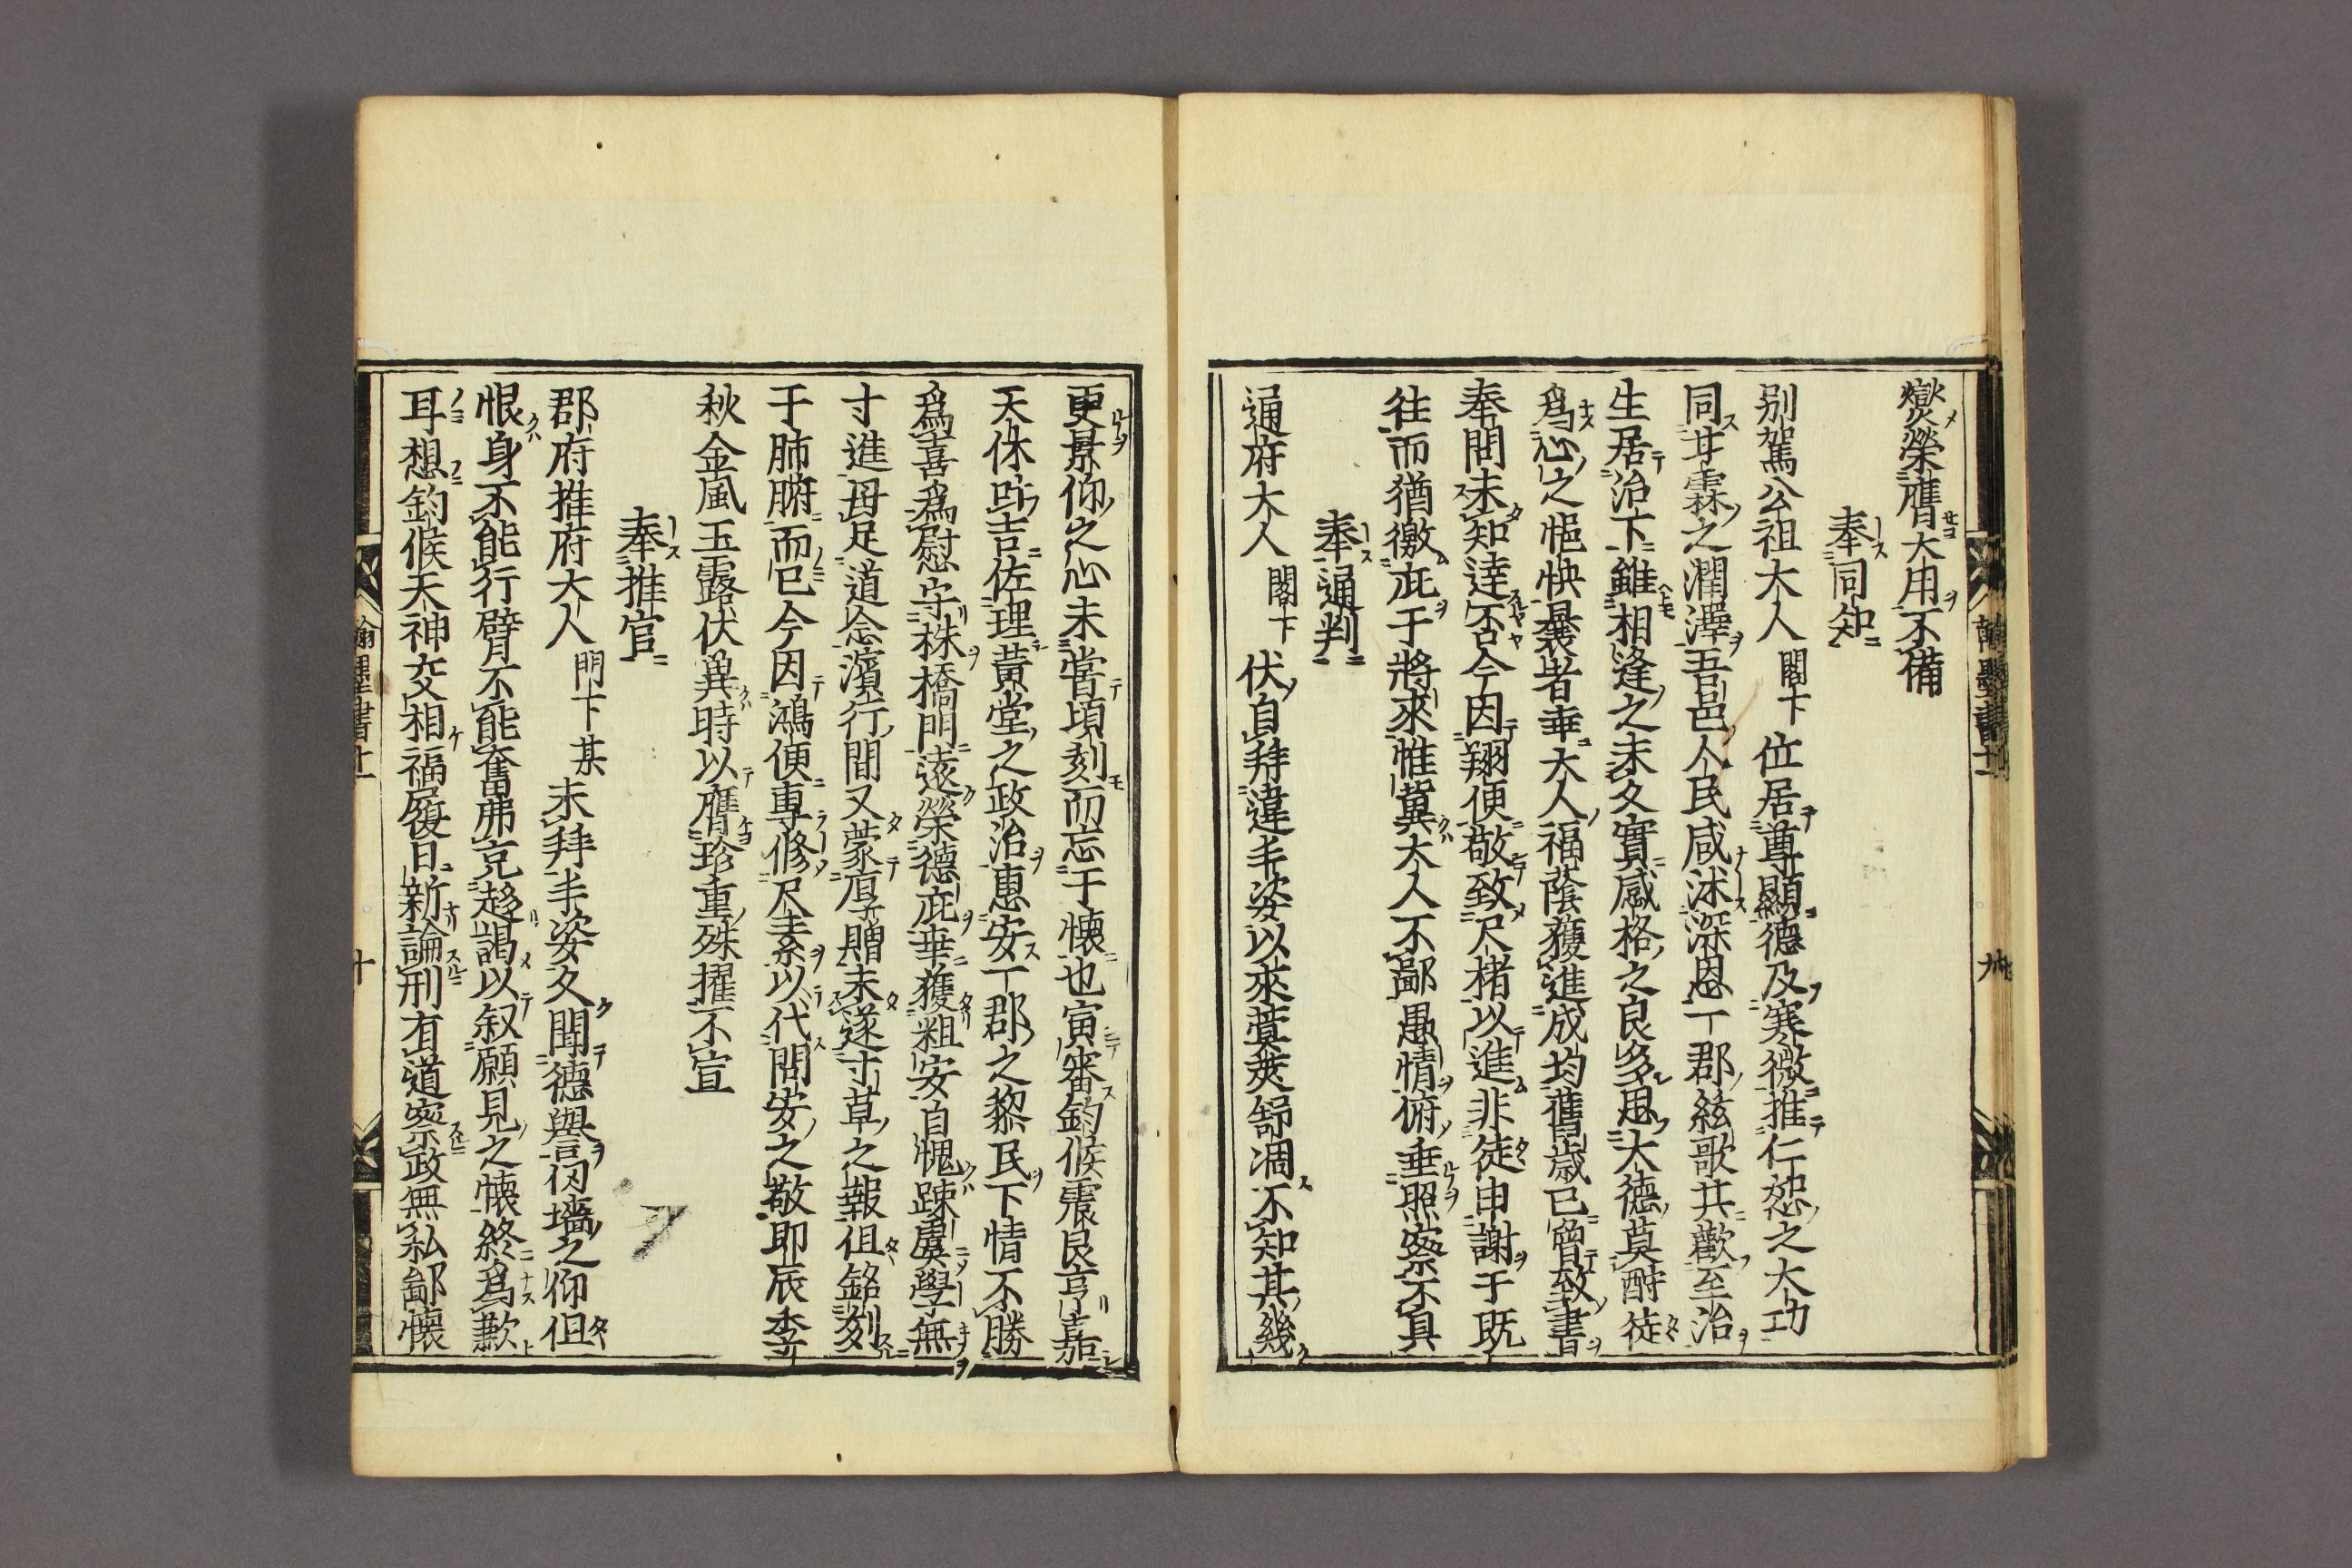 燮榮膺大用不備
奉同知
別駕公祖大人閣下位居尊顯德及寒微推仁恕之大功
同甘霖之潤澤吾邑人民咸沐深恩一郡絃歌共歡至治
生居治下雖相逢之未久實感格之良多思大德莫酧徒
爲心之悒怏曩者幸大人福蔭獲進成均舊歲已曾致書
奉聞未知達否今因翔便敬致尺楮以進非徒申謝于既
往而猶徼庇于將來惟冀大人不鄙愚情俯垂照察不具
奉通判
通府大人閣下伏自拜違丰姿以來蓂莢舒凋不知其幾
更景仰之心未嘗頃刻而忘于懷也寅審鈞候震艮亨嘉
天休與吉佐理黃堂之政治惠安一郡之黎民下情不勝
爲喜爲慰守株橋門遠榮德庇幸獲粗安自愧踈虞學無
寸進毋足道念濱行間又蒙厚贈未遂寸草之報徂銘刻
于肺腑而已今因鴻便專修尺素以代問安之敬耶辰季
秋金風玉露伏冀時以膺珍重殊擢不宣
奉推官
郡府推府大人門下某未拜丰姿久聞德譽仞墻之仰但
恨身不能行臂不能奮弗克趍謁以叙願見之懷終爲歉
耳想鈞候天神交相福履日新論刑有道察政無私鄙懷
翰墨書十一
九
翰墨書十一
十